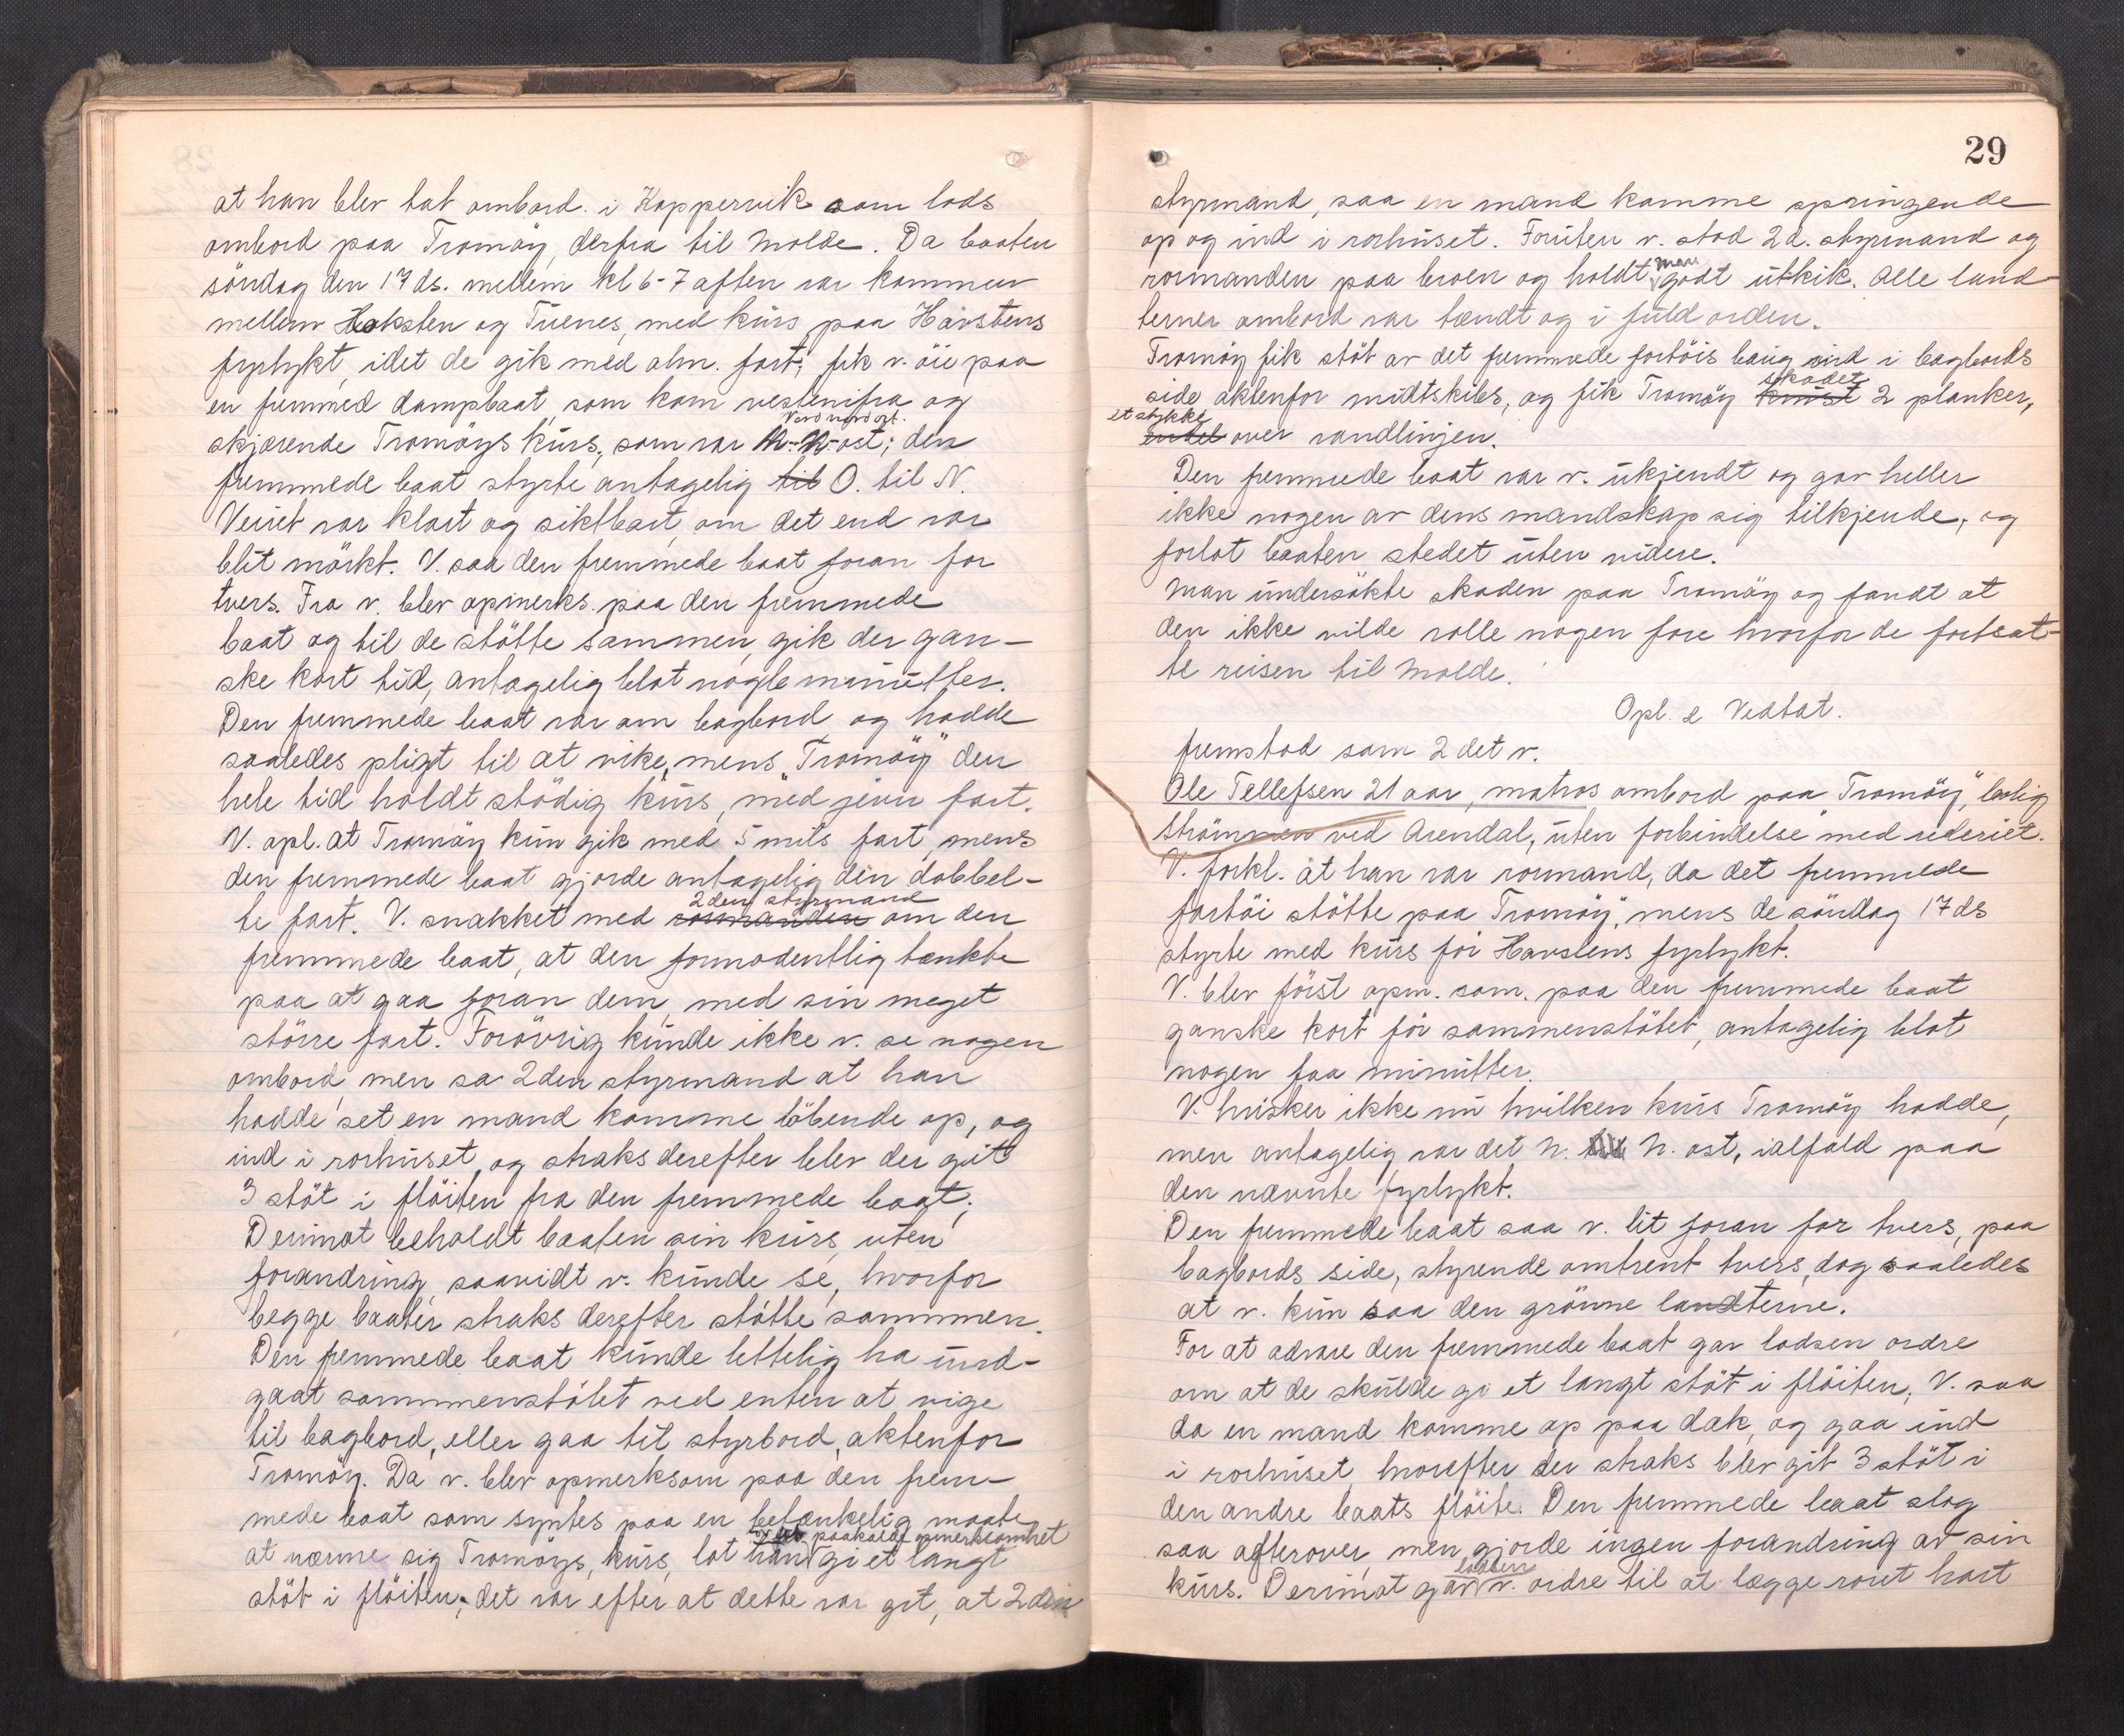 at han blev tat ombord i Koppervik som lods
ombord paa Tromöy, derfra til Molde. Da baaten
söndag den 17 ds. mellem kl 6-7 aften var kommen
mellem Heksten og Tuenes, med kurs paa Havstens
fyrlykt, idet de gik med alm. fart; fik v. öie paa
en fremmed dampbaat, som kom vestenifra og
skjærende Tromöys kurs, som var N-N-ost; den
Nordnordost.
fremmede baat styrte antagelig til O. til N.
Veiret var klart og siktbart, om det end var
blit mörkt. V. saa den fremmede baat foran for
tvers. Fra v. blev opmerks. paa den fremmede
baat og til de stötte sammen, gik der gan-
ske kort tid, antagelig blot nogle minutter.
Den fremmede baat var om bagbord og hadde
saaledes pligt til at vike, mens "Tromöy" den
hele tid holdt stödig kurs, med jevn fart.
V. opl. at Tromöy kun gik med 5 mils fart, mens
den fremmede baat gjorde antagelig den dobbel-
te fart. V. snakket med rormanden 2den styrmand om den
fremmede baat, at den formodentlig tænkte
paa at gaa foran dem, med sin meget
större fart. Forövrig kunde ikke v. se nogen
ombord, men sa 2den styrmand at han
hadde set en mand komme löbende op, og
ind i rorhuset, og straks derefter blev der git
3 stöt i flöiten fra den fremmede baat;
Derimot beholdt baaten sin kurs, uten
forandring, saavidt v. kunde se, hvorfor
begge baater straks derefter stötte sammen.
Den fremmede baat kunde lettelig ha und-
gaat sammenstötet ved enten at vige
til bagbord, eller gaa til styrbord, aktenfor
Tromöy. Da v. blev opmerksom paa den frem-
mede baat som syntes paa en betænkelig maate
at nærme sig Tromöys, kurs, lot han paakalde opmerksomhet gi et langt
stöt i flöiten; det var efter at dette var git, at 2den
29
styrmand, saa en mand komme springende
op og ind i rorhuset. Foruten v. stod 2d. styrmand og
rormanden paa broen og holdt man godt utkik. Alle land-
terner ombord var tændt og i fuld orden.
Tromöy fik stöt av det fremmede fortöis baug ind i bagbords
side aktenfor midtskibs, og fik Tromöy knust skadet 2 planker,
endel et stykke over vandlinjen.
Den fremmede baat var v. ukjendt og gav heller
ikke nogen av dens mandskap sig tilkjende, og
forlot baaten stedet uten videre.
Man undersökte skaden paa Tromöy og fandt at
den ikke vilde volle nogen fare hvorfor de fortsat-
te reisen til Molde.
Opl. & Vedtat.
fremstod som 2 det v.
Ole Tellefsen 21 aar, matros ombord paa "Tromöy", bolig
Strömmen ved Arendal, uten forbindelse med rederiet.
V. forkl. at han var rormand, da det fremmede
fartöi stötte paa "Tromöy", mens de söndag 17 ds
styrte med kurs for Havstens fyrlykt.
V. blev först opm. som. paa den fremmede baat
ganske kort för sammenstötet, antagelig blot
nogen faa minutter.
V. husker ikke nu hvilken kurs Tromöy hadde,
men antagelig var det N. N. ost, ialfald paa
den nævnte fyrlykt.
Den fremmede baat saa v. lit foran for tvers, paa
bagbords side, styrende omtrent tvers, dog saaledes
at v. kun saa den grönne landterne.
For at advare den fremmede baat gav lodsen ordre
om at de skulde gi et langt stöt i flöiten; V. saa
da en mand komme op paa dæk, og gaa ind
i rorhuset hvorefter der straks blev git 3 stöt i
den andre baats flöite. Den fremmede baat slog
saa agterover, men gjorde ingen forandring av sin
kurs. Derimot gav v. lodsen ordre til at lægge roret hart